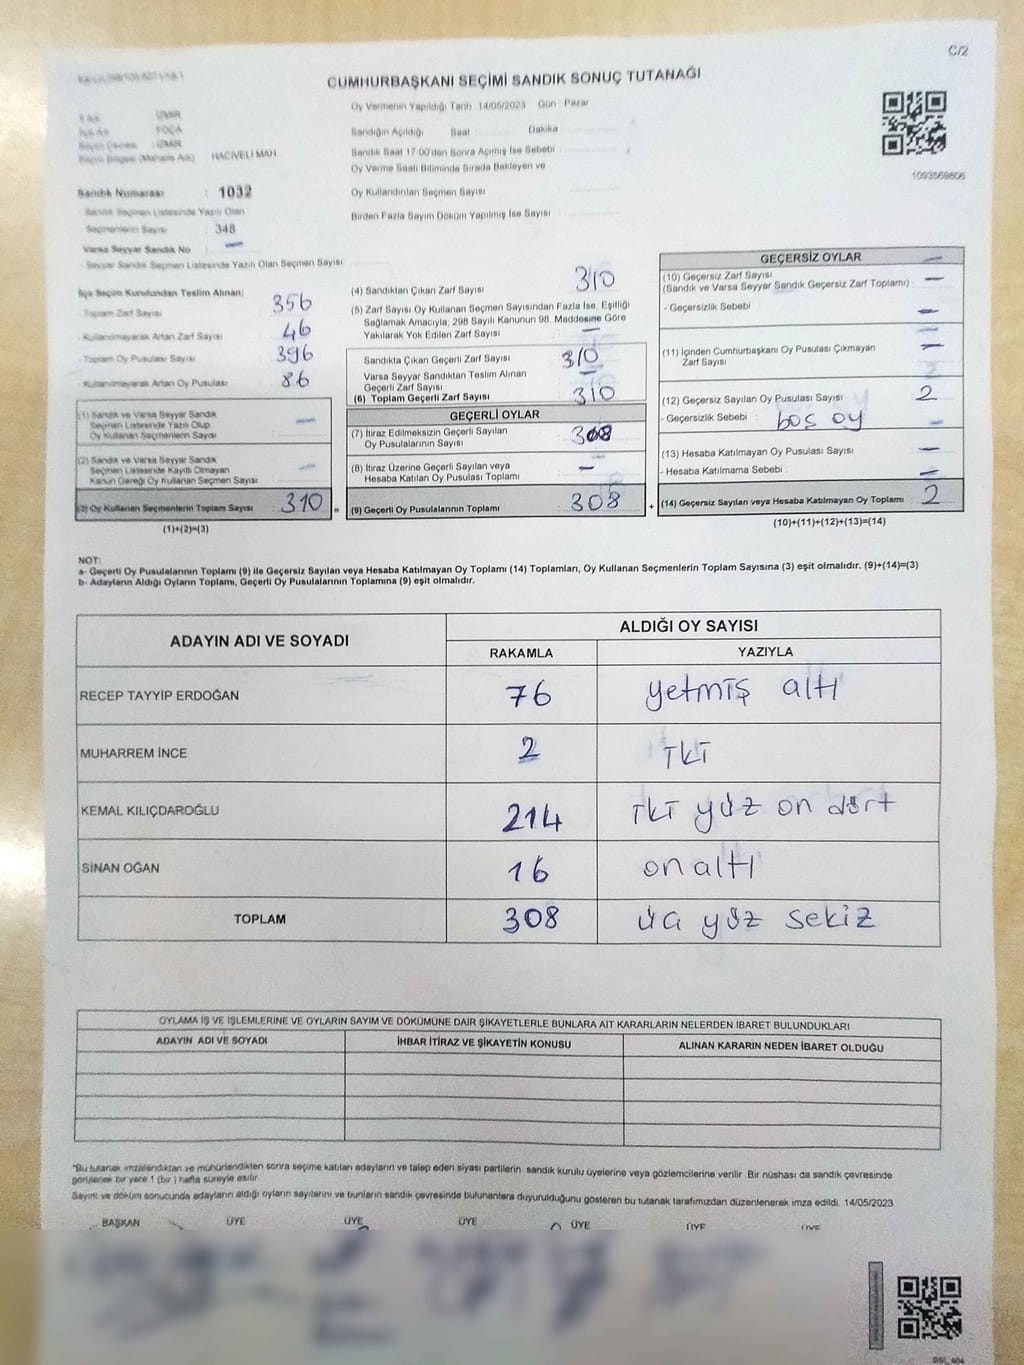 C/2
CUMHURBAŞKANI SEÇİMİ SANDIK SONUÇ TUTANAĞI
İZMİR
FOÇA
: İZMİR
: HACIVELİ MAH
Sandık Numarası : 1032
Sandık Seçmen Listesinde Yazılı Olan
Seçmenlerin Sayısı : 348
Varsa Seyyar Sandık No : —
- Seyyar Sandık Seçmen Listesinde Yazılı Olan Seçmen Sayısı:
Oy Vermenin Yapıldığı Tarih :14/05/2023 Gün : Pazar
Sandığın Açıldığı Saat Dakika
Sandık Saat 17:00'den Sonra Açılmış İse Sebebi :
Oy Verme Saati Bitiminde Sırada Bekleyen ve
Oy Kullandırılan Seçmen Sayısı
Birden Fazla Sayım Döküm Yapılmış İse Sayısı
1093569806
İlçe Seçim Kurulundan Teslim Alınan;
- Toplam Zarf Sayısı 356
- Kullanılmayarak Artan Zarf Sayısı 46
- Toplam Oy Pusulası Sayısı 396
- Kullanılmayarak Artan Oy Pusulası 86
(1) Sandık ve Varsa Seyyar Sandık
Seçmen Listesinde Yazılı Olup
Oy Kullanan Seçmenlerin Sayısı —
(2) Sandık ve Varsa Seyyar Sandık
Seçmen Listesinde Kayıtlı Olmayan
Kanun Gereği Oy Kullanan Seçmen Sayısı —
(3) Oy Kullanan Seçmenlerin Toplam Sayısı : 310 =
(1)+(2)=(3)
(4) Sandıktan Çıkan Zarf Sayısı 310
(5) Zarf Sayısı Oy Kullanan Seçmen Sayısından Fazla İse, Eşitliği
Sağlamak Amacıyla, 298 Sayılı Kanunun 98. Maddesine Göre
Yakılarak Yok Edilen Zarf Sayısı —
Sandıkta Çıkan Geçerli Zarf Sayısı 310
Varsa Seyyar Sandıktan Teslim Alınan
Geçerli Zarf Sayısı —
(6) Toplam Geçerli Zarf Sayısı 310
GEÇERLİ OYLAR
(7) İtiraz Edilmeksizin Geçerli Sayılan
Oy Pusulalarının Sayısı 308
(8) İtiraz Üzerine Geçerli Sayılan veya
Hesaba Katılan Oy Pusulası Toplamı —
(9) Geçerli Oy Pusulalarının Toplamı 308 +
GEÇERSİZ OYLAR —
(10) Geçersiz Zarf Sayısı —
(Sandık ve Varsa Seyyar Sandık Geçersiz Zarf Toplamı) :
- Geçersizlik Sebebi : —
(11) İçinden Cumhurbaşkanı Oy Pusulası Çıkmayan
Zarf Sayısı —
(12) Geçersiz Sayılan Oy Pusulası Sayısı : 2
- Geçersizlik Sebebi : boş oy —
(13) Hesaba Katılmayan Oy Pusulası Sayısı : —
- Hesaba Katılmama Sebebi : —
(14) Geçersiz Sayılan veya Hesaba Katılmayan Oy Toplamı : 2
(10)+(11)+(12)+(13)=(14)
NOT:
a- Geçerli Oy Pusulalarının Toplamı (9) ile Geçersiz Sayılan veya Hesaba Katılmayan Oy Toplamı (14) Toplamları, Oy Kullanan Seçmenlerin Toplam Sayısına (3) eşit olmalıdır. (9)+(14)=(3)
b- Adayların Aldığı Oyların Toplamı, Geçerli Oy Pusulalarının Toplamına (9) eşit olmalıdır.
ADAYIN ADI VE SOYADI ALDIĞI OY SAYISI
RAKAMLA YAZIYLA
RECEP TAYYİP ERDOĞAN 76 yetmiş altı
MUHARREM İNCE 2 İKİ
KEMAL KILIÇDAROĞLU 214 İKİ yüz on dört
SİNAN OĞAN 16 on altı
TOPLAM 308 üç yüz sekiz
OYLAMA İŞ VE İŞLEMLERİNE VE OYLARIN SAYIM VE DÖKÜMÜNE DAİR ŞİKAYETLERLE BUNLARA AİT KARARLARIN NELERDEN İBARET BULUNDUKLARI
ADAYIN ADI VE SOYADI İHBAR İTİRAZ VE ŞİKAYETİN KONUSU ALINAN KARARIN NEDEN İBARET OLDUĞU
*Bu tutanak imzalandıktan ve mühürlendikten sonra seçime katılan adayların ve talep eden siyasi partilerin sandık kurulu üyelerine veya gözlemcilerine verilir. Bir nüshası da sandık çevresinde
görülecek bir yere 1 (bir ) hafta süreyle asılır.
Sayım ve döküm sonucunda adayların aldığı oyların sayılarını ve bunların sandık çevresinde bulunanlara duyurulduğunu gösteren bu tutanak tarafımızdan düzenlenerek imza edildi. 14/05/2023
BAŞKAN ÜYE ÜYE ÜYE ÜYE ÜYE ÜYE